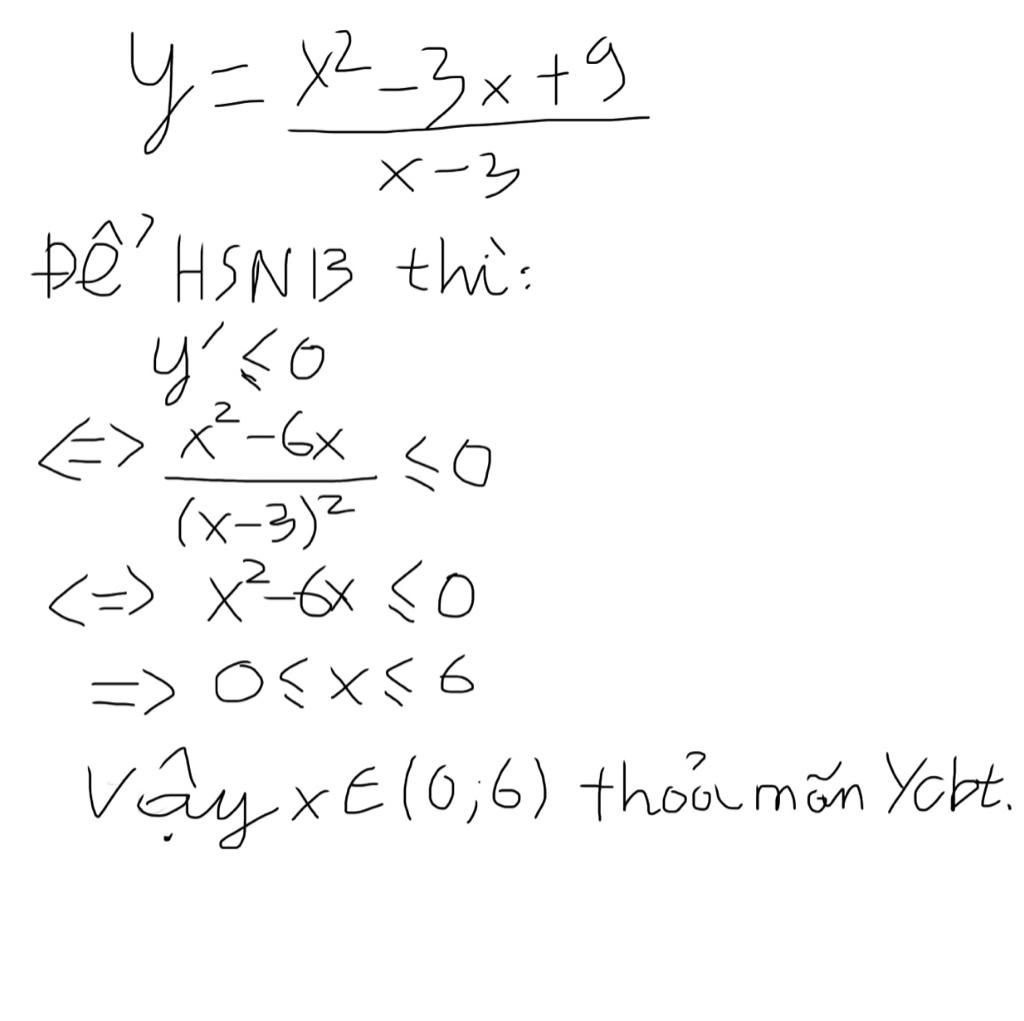 y = x² - 3x + 9
x - 3
Để HSNB thì:
y' ≤ 0
<=> x² - 6x ≤ 0
(x - 3)²
<=> x² - 6x ≤ 0
=> 0 ≤ x ≤ 6
Vậy x ∈ (0;6) thỏa mãn Ycbt.